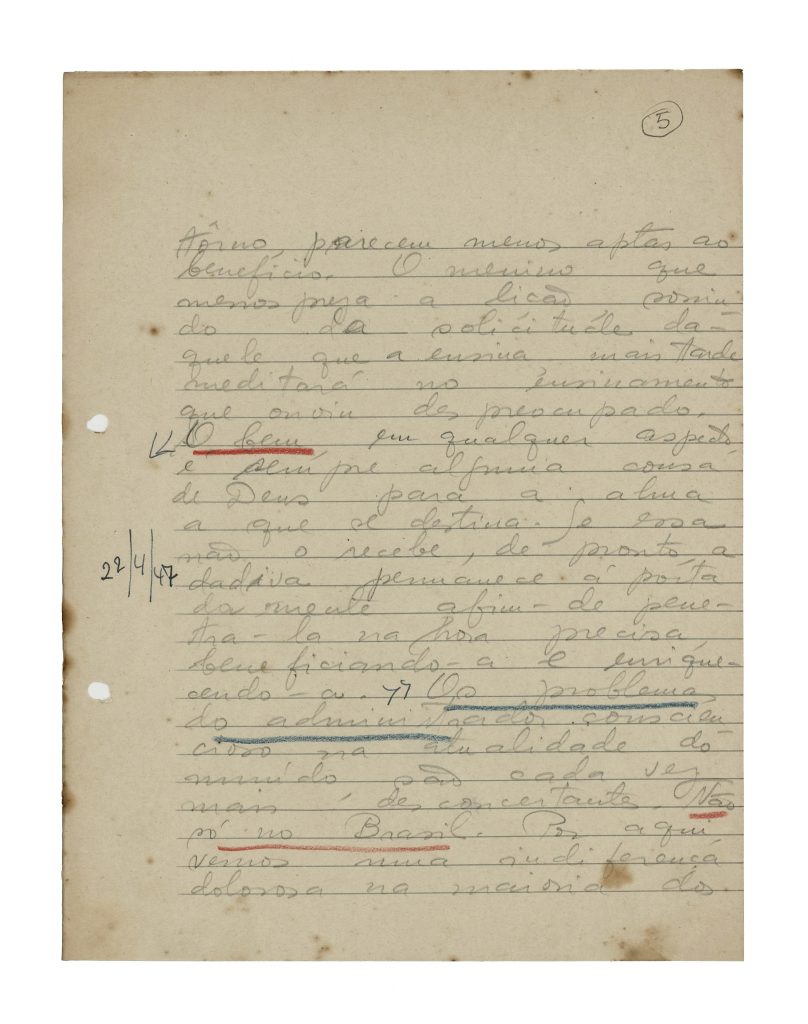 5
tôrno, parecem menos aptas ao
beneficio. O menino que
menospreza a licão rosin
do da solicitude da-
quele que a ensina mais tarde
meditará no ensinamento
que ouviu despreocupado.
O bem, em qualquer aspecto
é sempre alguma cousa
de Deus para a alma
a que se destina. Se essa
não o recebe, de pronto, a
22/4/47
dadiva permanece á porta
da mente afim-de pene-
tra-la na hora precisa,
beneficiando-a e enrique-
cendo-a. Os problemas
do administrador conscien
cioso na atualidade do
mundo são cada vez
mais desconcertantes. Não
só no Brasil. Por aqui
vemos uma indiferença
dolorosa na maioria dos